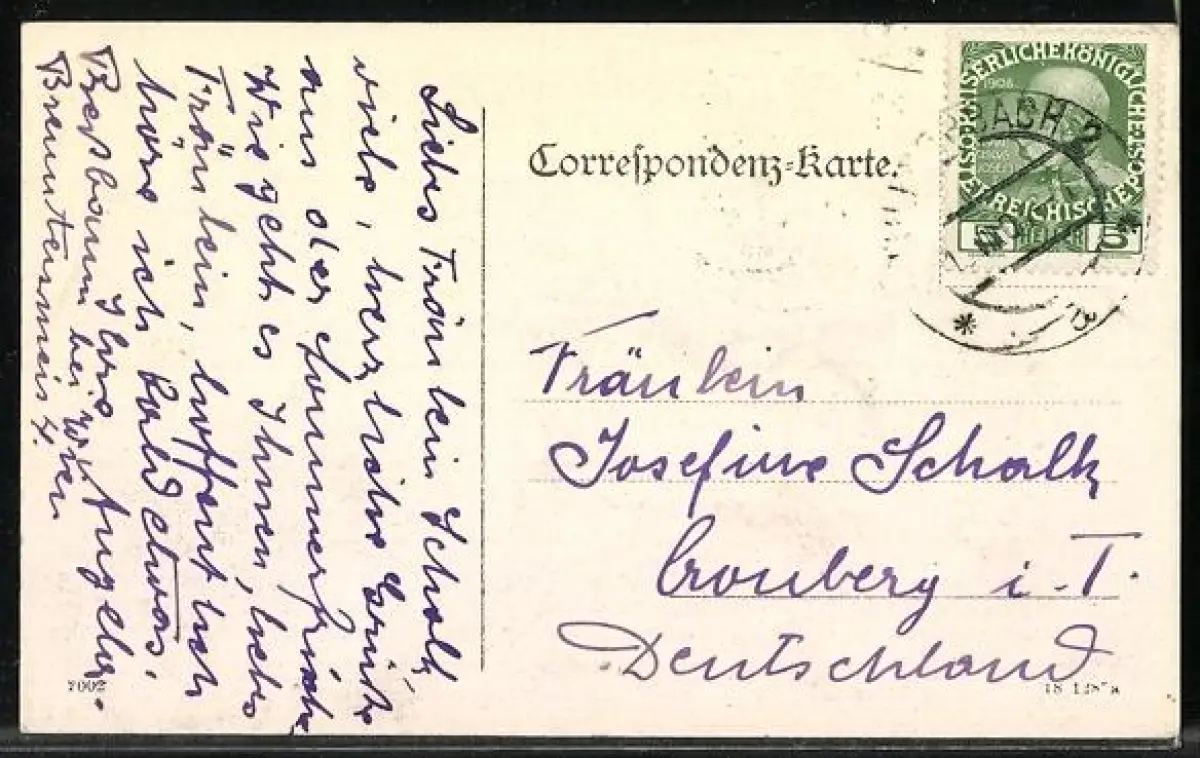 Liebes Fräulein Schalk,
viele, herzliche Grüße
aus der Sommerfrische
Wie geht es Ihnen, liebes
Fräulein, hoffentlich
höre ich bald etwas.
Ihre Angela.
Preßbaum bei Wien
Brentenmais 4.
Correspondenz-Karte.
KAISERLICHE KÖNIGLICHE ÖSTERREICHISCHE POST
1908
5 HELLER 5
BACH 2
Fräulein
Josefine Schalk
Cronberg i. T.
Deutschland
7002